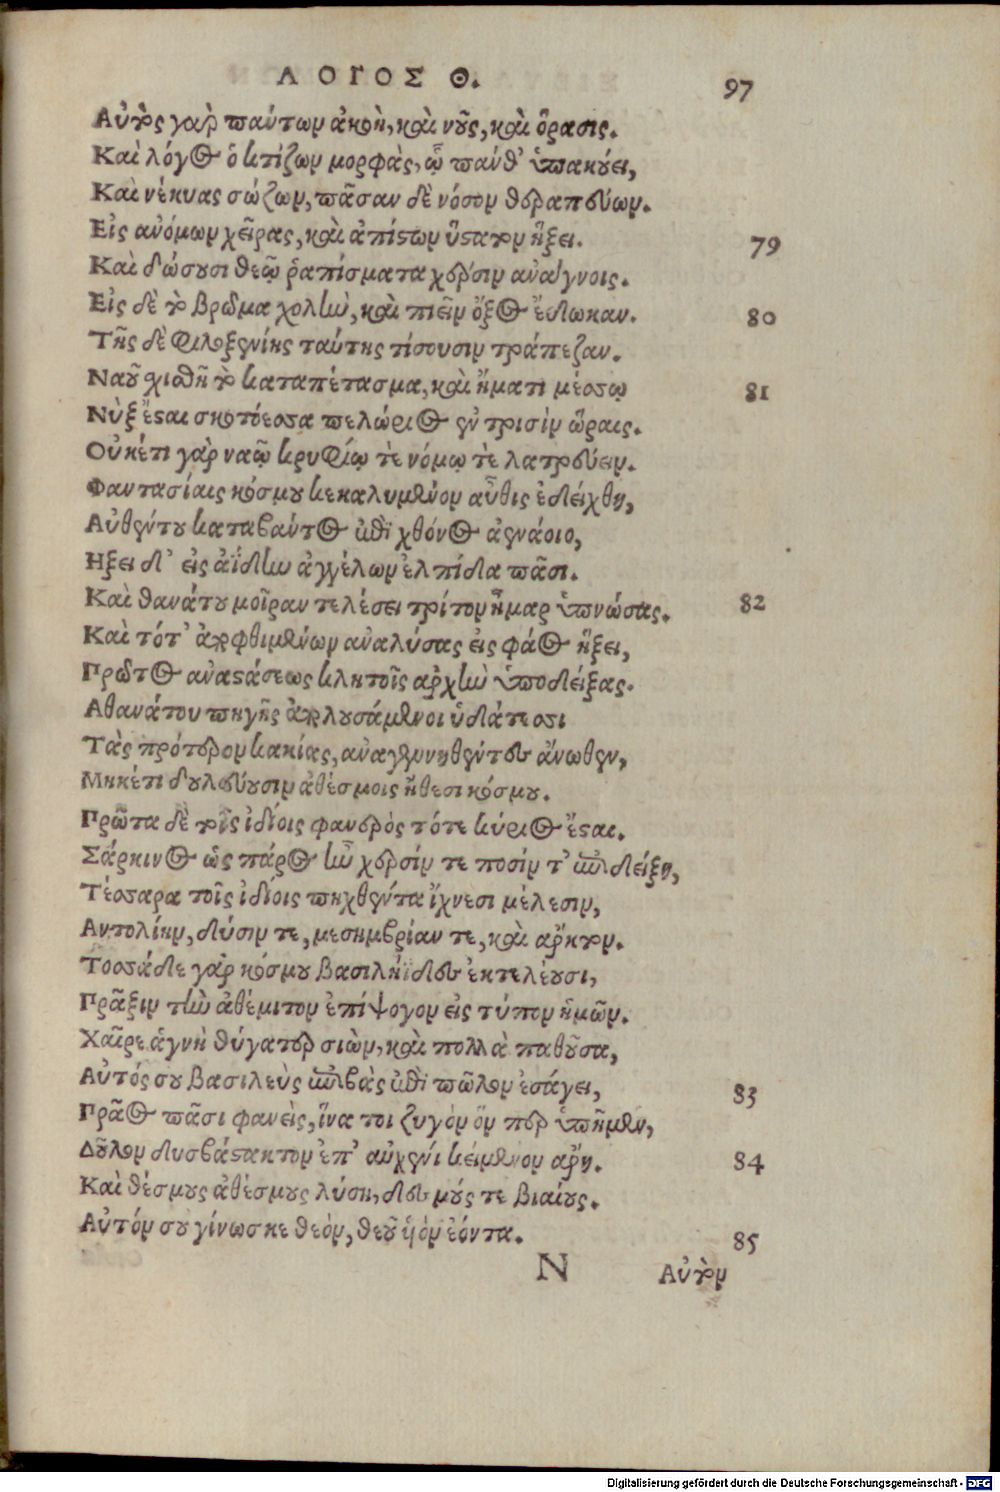 ΛΟΓΟΣ Θ. 97
Αὐτὸς γὰρ πάντων ἀκοὴ, καὶ νοῦς, καὶ ὅρασις.
Καὶ λόγος ὁ κτίζων μορφὰς, ᾧ πάνθ' ὑπακούει,
Καὶ νέκυας σώζων, πᾶσαν δὲ νόσον θεραπεύων.
Εἰς ἀνόμων χεῖρας, καὶ ἀπίστων ὕστατον ἥξει. 79
Καὶ δώσουσι θεῷ ῥαπίσματα χερσὶν ἀνάγνοις.
Εἰς δὲ τὸ βρῶμα χολὴν, καὶ πιεῖν ὄξος ἔδωκαν. 80
Τῆς δὲ φιλοξενίης ταύτης τίσουσιν τράπεζαν.
Ναοῦ χισθῆ τὸ καταπέτασμα, καὶ ἤματι μέσσῳ 81
Νὺξ ἔσται σκοτόεσσα πελώριος ἐν τρισὶν ὥραις.
Οὐκέτι γὰρ ναῷ κρυφίῳ τὲ νόμῳ τὲ λατρεύειν.
Φαντασίαις κόσμου κεκαλυμμένον αὖθις ἐδείχθη,
Αὐθέντου καταβάντος ἐπὶ χθόνος ἀενάοιο,
Ηξει δ' εἰς ἀΐδην ἀγγέλων ἐλπίδα πᾶσι.
Καὶ θανάτου μοῖραν τελέσει τρίτον ἦμαρ ὑπνώσας. 82
Καὶ τότ' ἀπὸ φθιμένων ἀναλύσας εἰς φάος ἥξει,
Πρῶτος ἀναστάσεως κλητοῖς ἀρχὴν ὑποδείξας.
Αθανάτου πηγῆς ἀπολουσάμενοι ὑδάτεσσι
Τὰς πρότερον κακίας, ἀναγεννηθέντες ἄνωθεν,
Μηκέτι δουλεύουσιν ἀθέσμοις ἤθεσι κόσμου.
Πρῶτα δὲ τοῖς ἰδίοις φανερὸς τότε κύριος ἔσται.
Σάρκινος ὡς πάρος ἦν χερσίν τε ποσίν τ' ἐπιδείξῃ,
Τέσσαρα τοῖς ἰδίοις πηχθέντα ἴχνεσι μέλεσιν,
Αντολίην, δύσιν τε, μεσημβρίαν τε, καὶ ἄρκτον.
Τοσσάδε γὰρ κόσμου βασιληΐδες ἐκτελέουσι,
Πρᾶξιν τὴν ἀθέμιτον ἐπίψογον εἰς τύπον ἡμῶν.
Χαῖρε ἁγνὴ θύγατερ σιὼν, καὶ πολλὰ παθοῦσα,
Αὐτός σου βασιλεὺς ἐπιβὰς ἐπὶ πῶλον ἐσάγει, 83
Πρᾶος πᾶσι φανεὶς, ἵνα τοι ζυγὸν ὅν περ ὑπῆμεν,
Δοῦλον δυσβάστακτον ἐπ' αὐχένι κείμενον ἄρῃ. 84
Καὶ θέσμους ἀθέσμους λύσῃ, δεσμούς τε βιαίους.
Αὐτόν σου γίνωσκε θεὸν, θεοῦ υἱὸν ἐόντα. 85
N Αὐτὸν
Digitalisierung gefördert durch die Deutsche Forschungsgemeinschaft - DFG